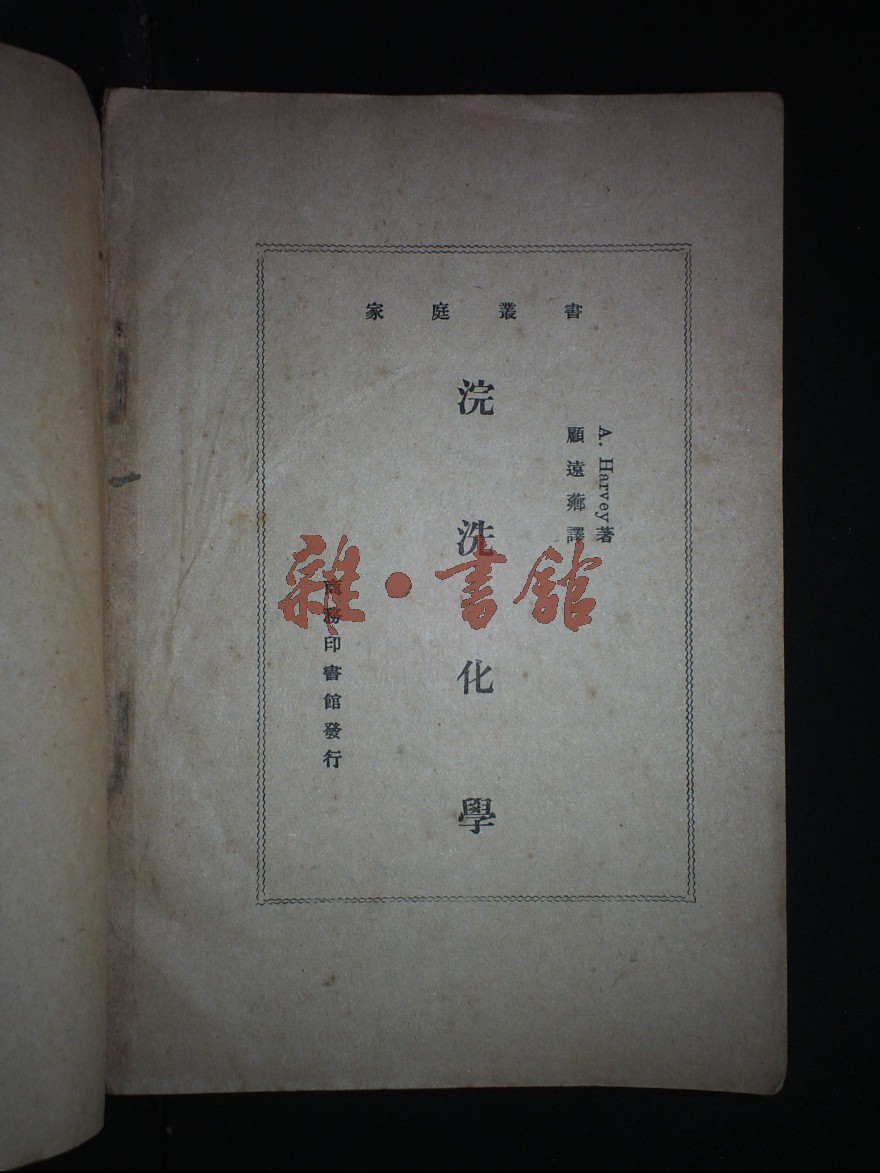 家庭叢書
A. Harvey著
顧遠薌譯
浣洗化學
商務印書館發行
雜·書館